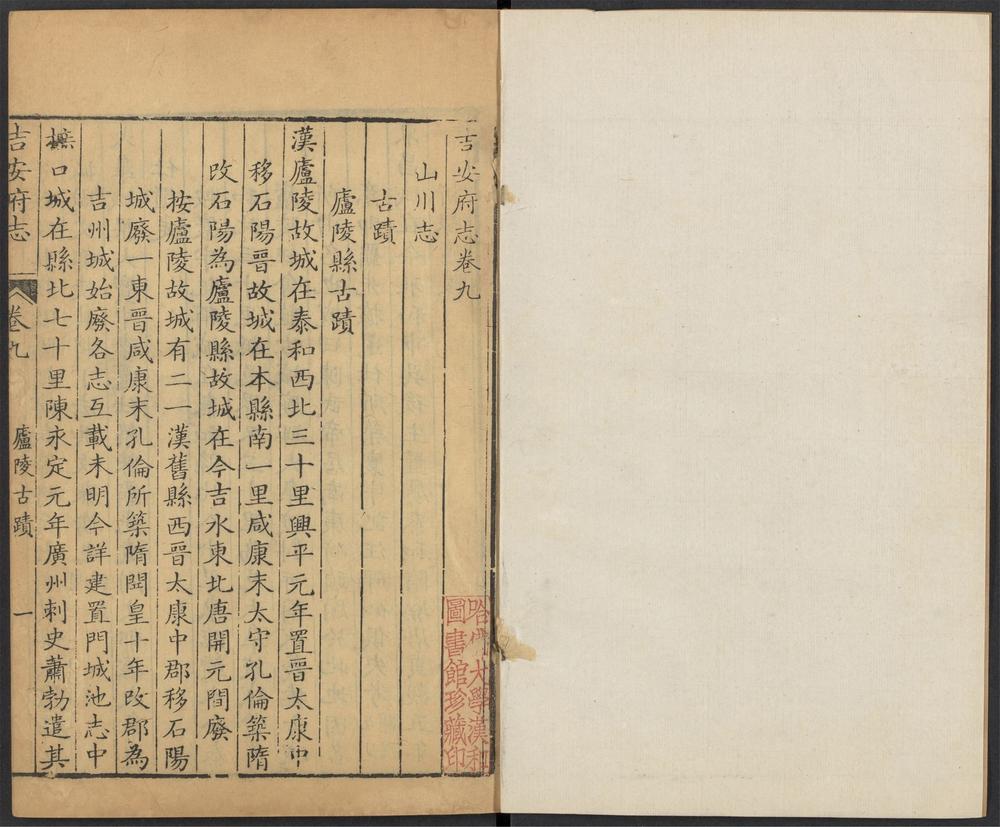 吉安府志卷九
山川志
古蹟
廬陵縣古蹟
漢廬陵故城在泰和西北三十里興平元年置晉太康中
移石陽晉故城在本縣南一里咸康末太守孔倫築隋
改石陽為廬陵縣故城在今吉水東北唐開元間廢
按廬陵故城有二一漢舊縣西晉太康中郡移石陽
城廢一東晉咸康末孔倫所築隋開皇十年改郡為
吉州城始廢各志互載未明今詳建置門城池志中
櫎口城在縣北七十里陳永定元年廣州刺史蕭勃遣其
吉安府志
卷九
廬陵古蹟
一
哈佛大學漢和
圖書館珍藏印